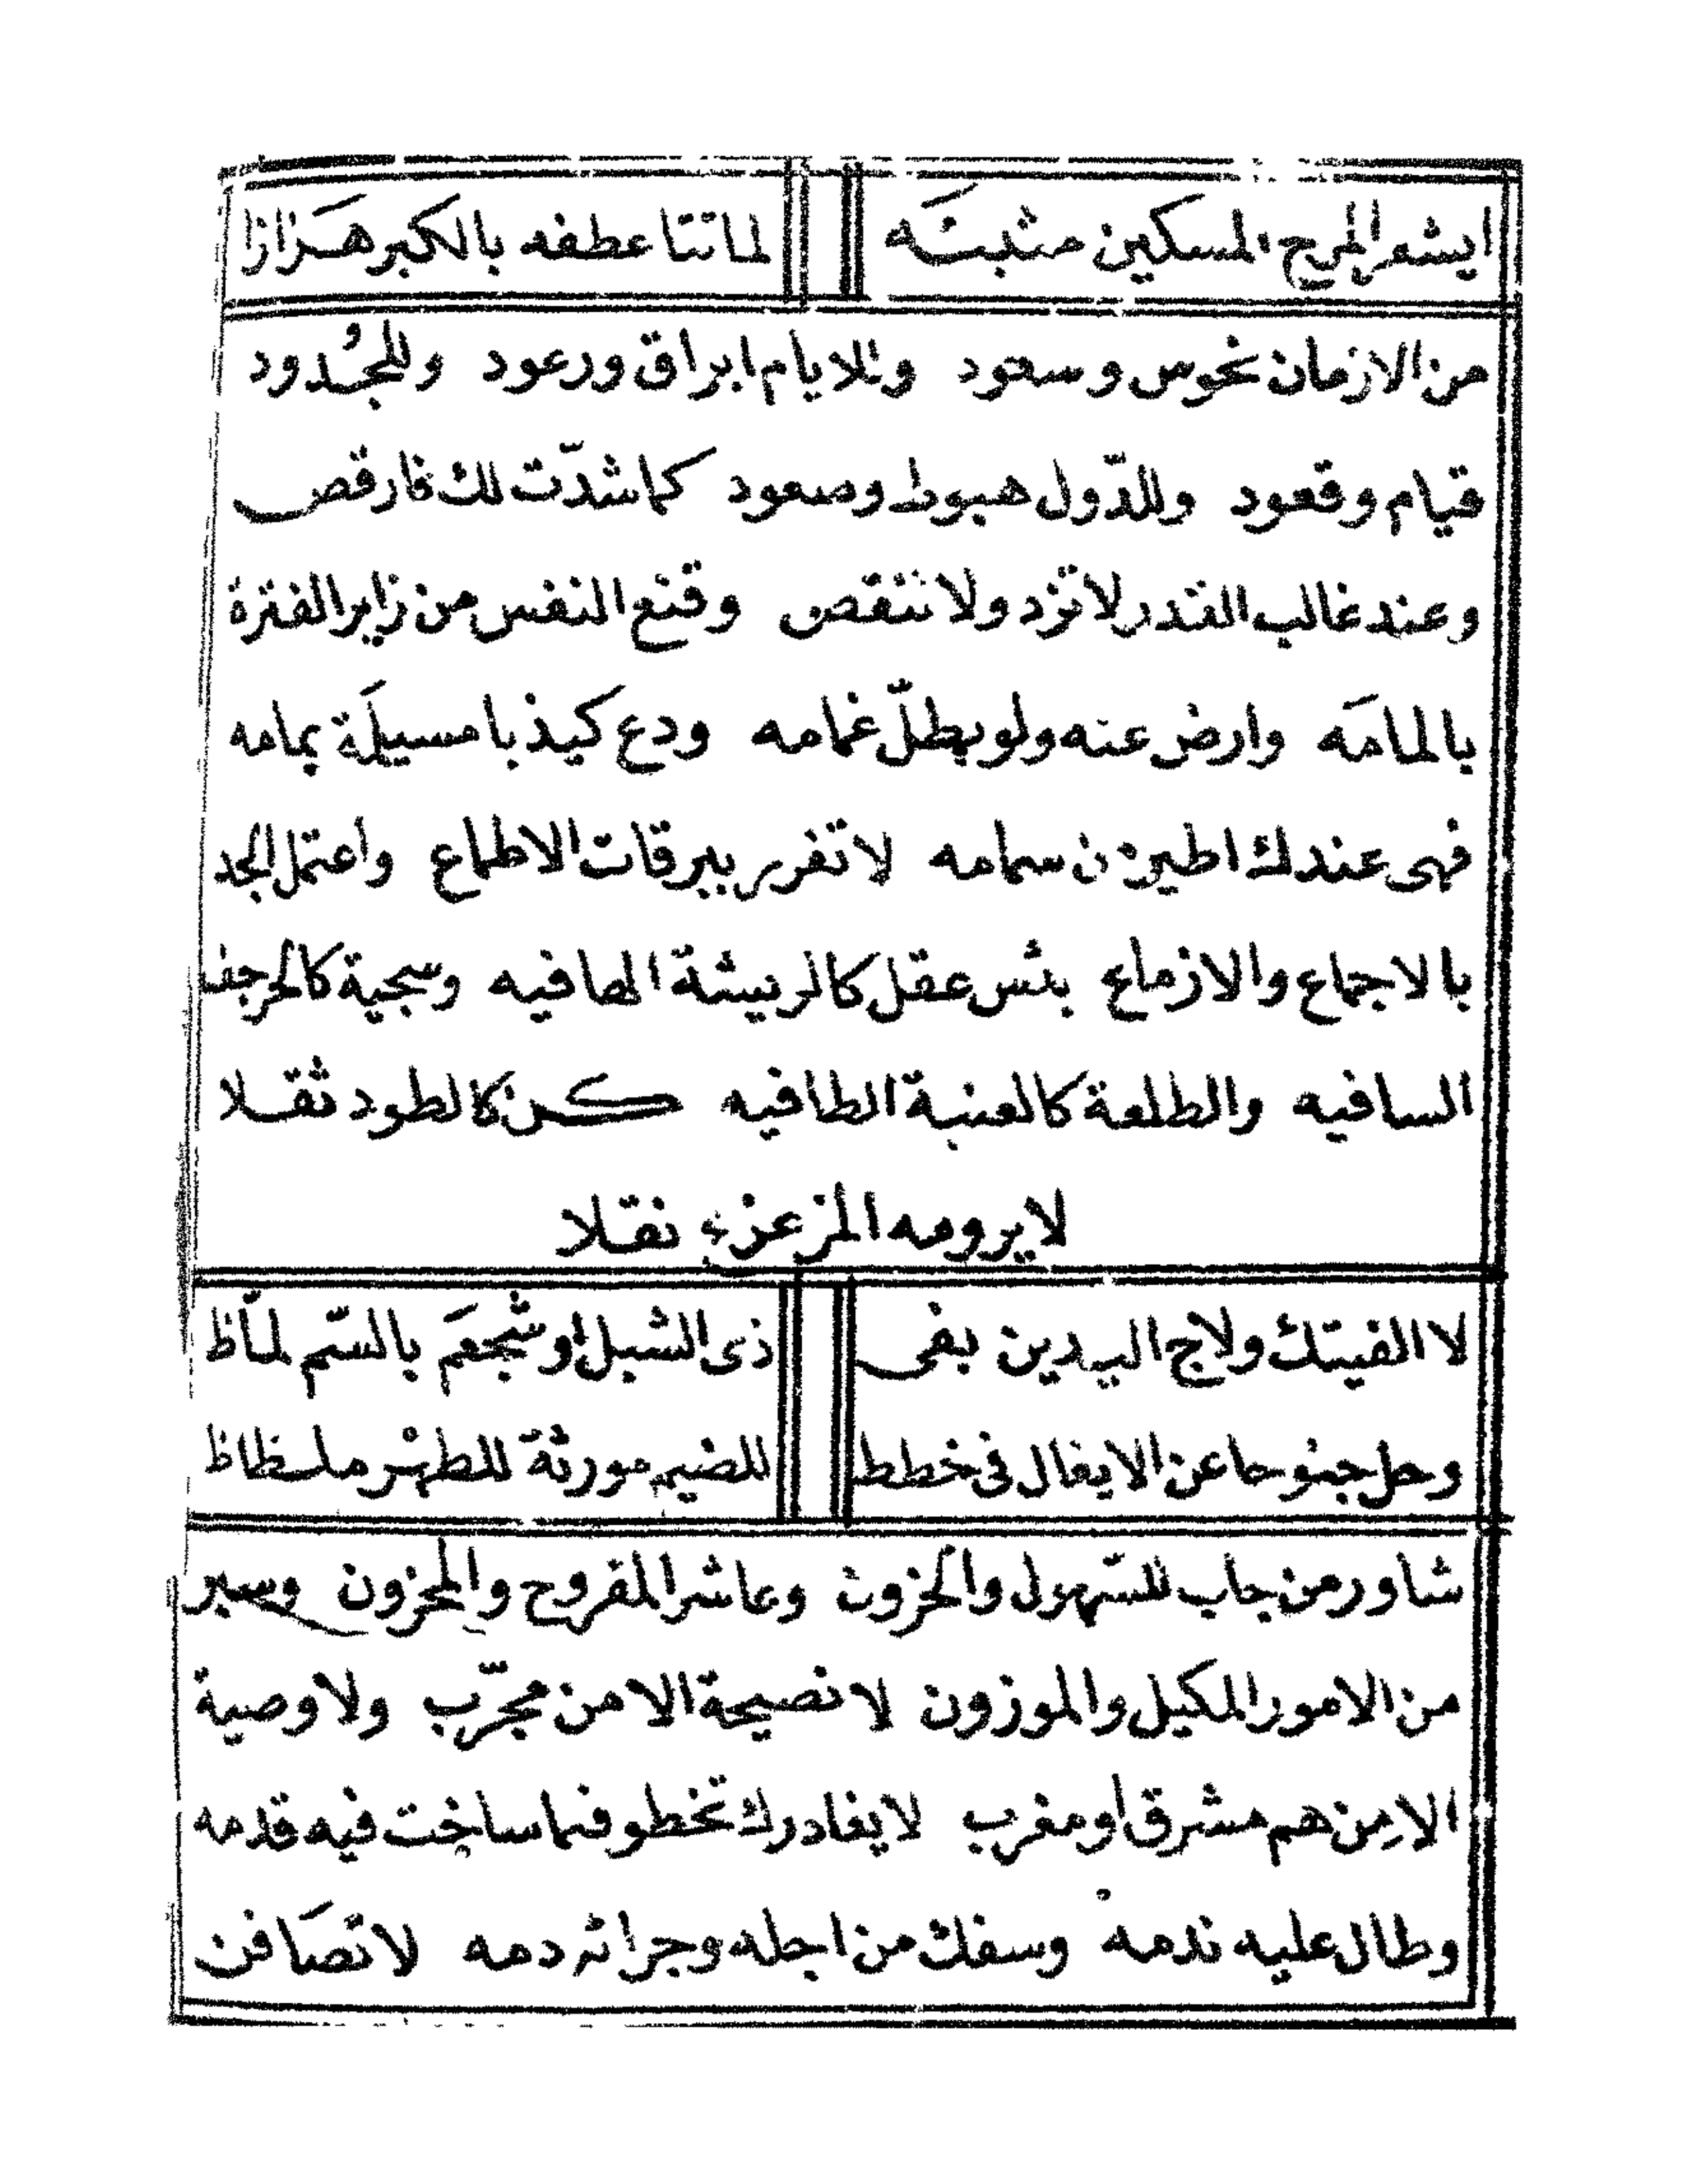 ايشعر المرح المسكين مثبته لما تتا عطفه بالكبر هزازا
من الازمان نحوس وسعود وللايام ابراق ورعود وللجُدود
قيام وقعود وللدّول هبوط وصعود كما شدّت لك فارقص
وعند غالب القدر لا تزد ولا تنقص وقنع النفس من زاير الفترة
بالمامَه وارض عنه ولو بطلّ غمامه ودع كيذبا مسيلَمة يمامه
فهى عندك اطير من سمامه لا تغرر ببرقات الاطماع واعتمل الجد
بالاجماع والازماع بئس عقل كالريشة الهافيه وسجية كالحرجف
السافيه والطلعة كالعنبة الطافيه كن كالطود ثقلا
لا يرومه المزعزع نقلا
لا الفيتك ولاج اليدين بفى ذى الشبل او شجعَم بالسّم لمّاظ
وحل جنوحا عن الايغال فى خطط للضيم مورثة للطهْر ملظاظ
شاور من جاب للسّهول والحزون وعاشر المقروح والمحزون وسبر
من الامور المكيل والموزون لا نصيحة الا من مجرّب ولا وصية
الا مِن هم مشرق او مغرب لا يغادرك تخطو فيما ساخت فيه قدمه
وطال عليه ندمه وسفك من اجله وجرائه دمه لا تصَافن